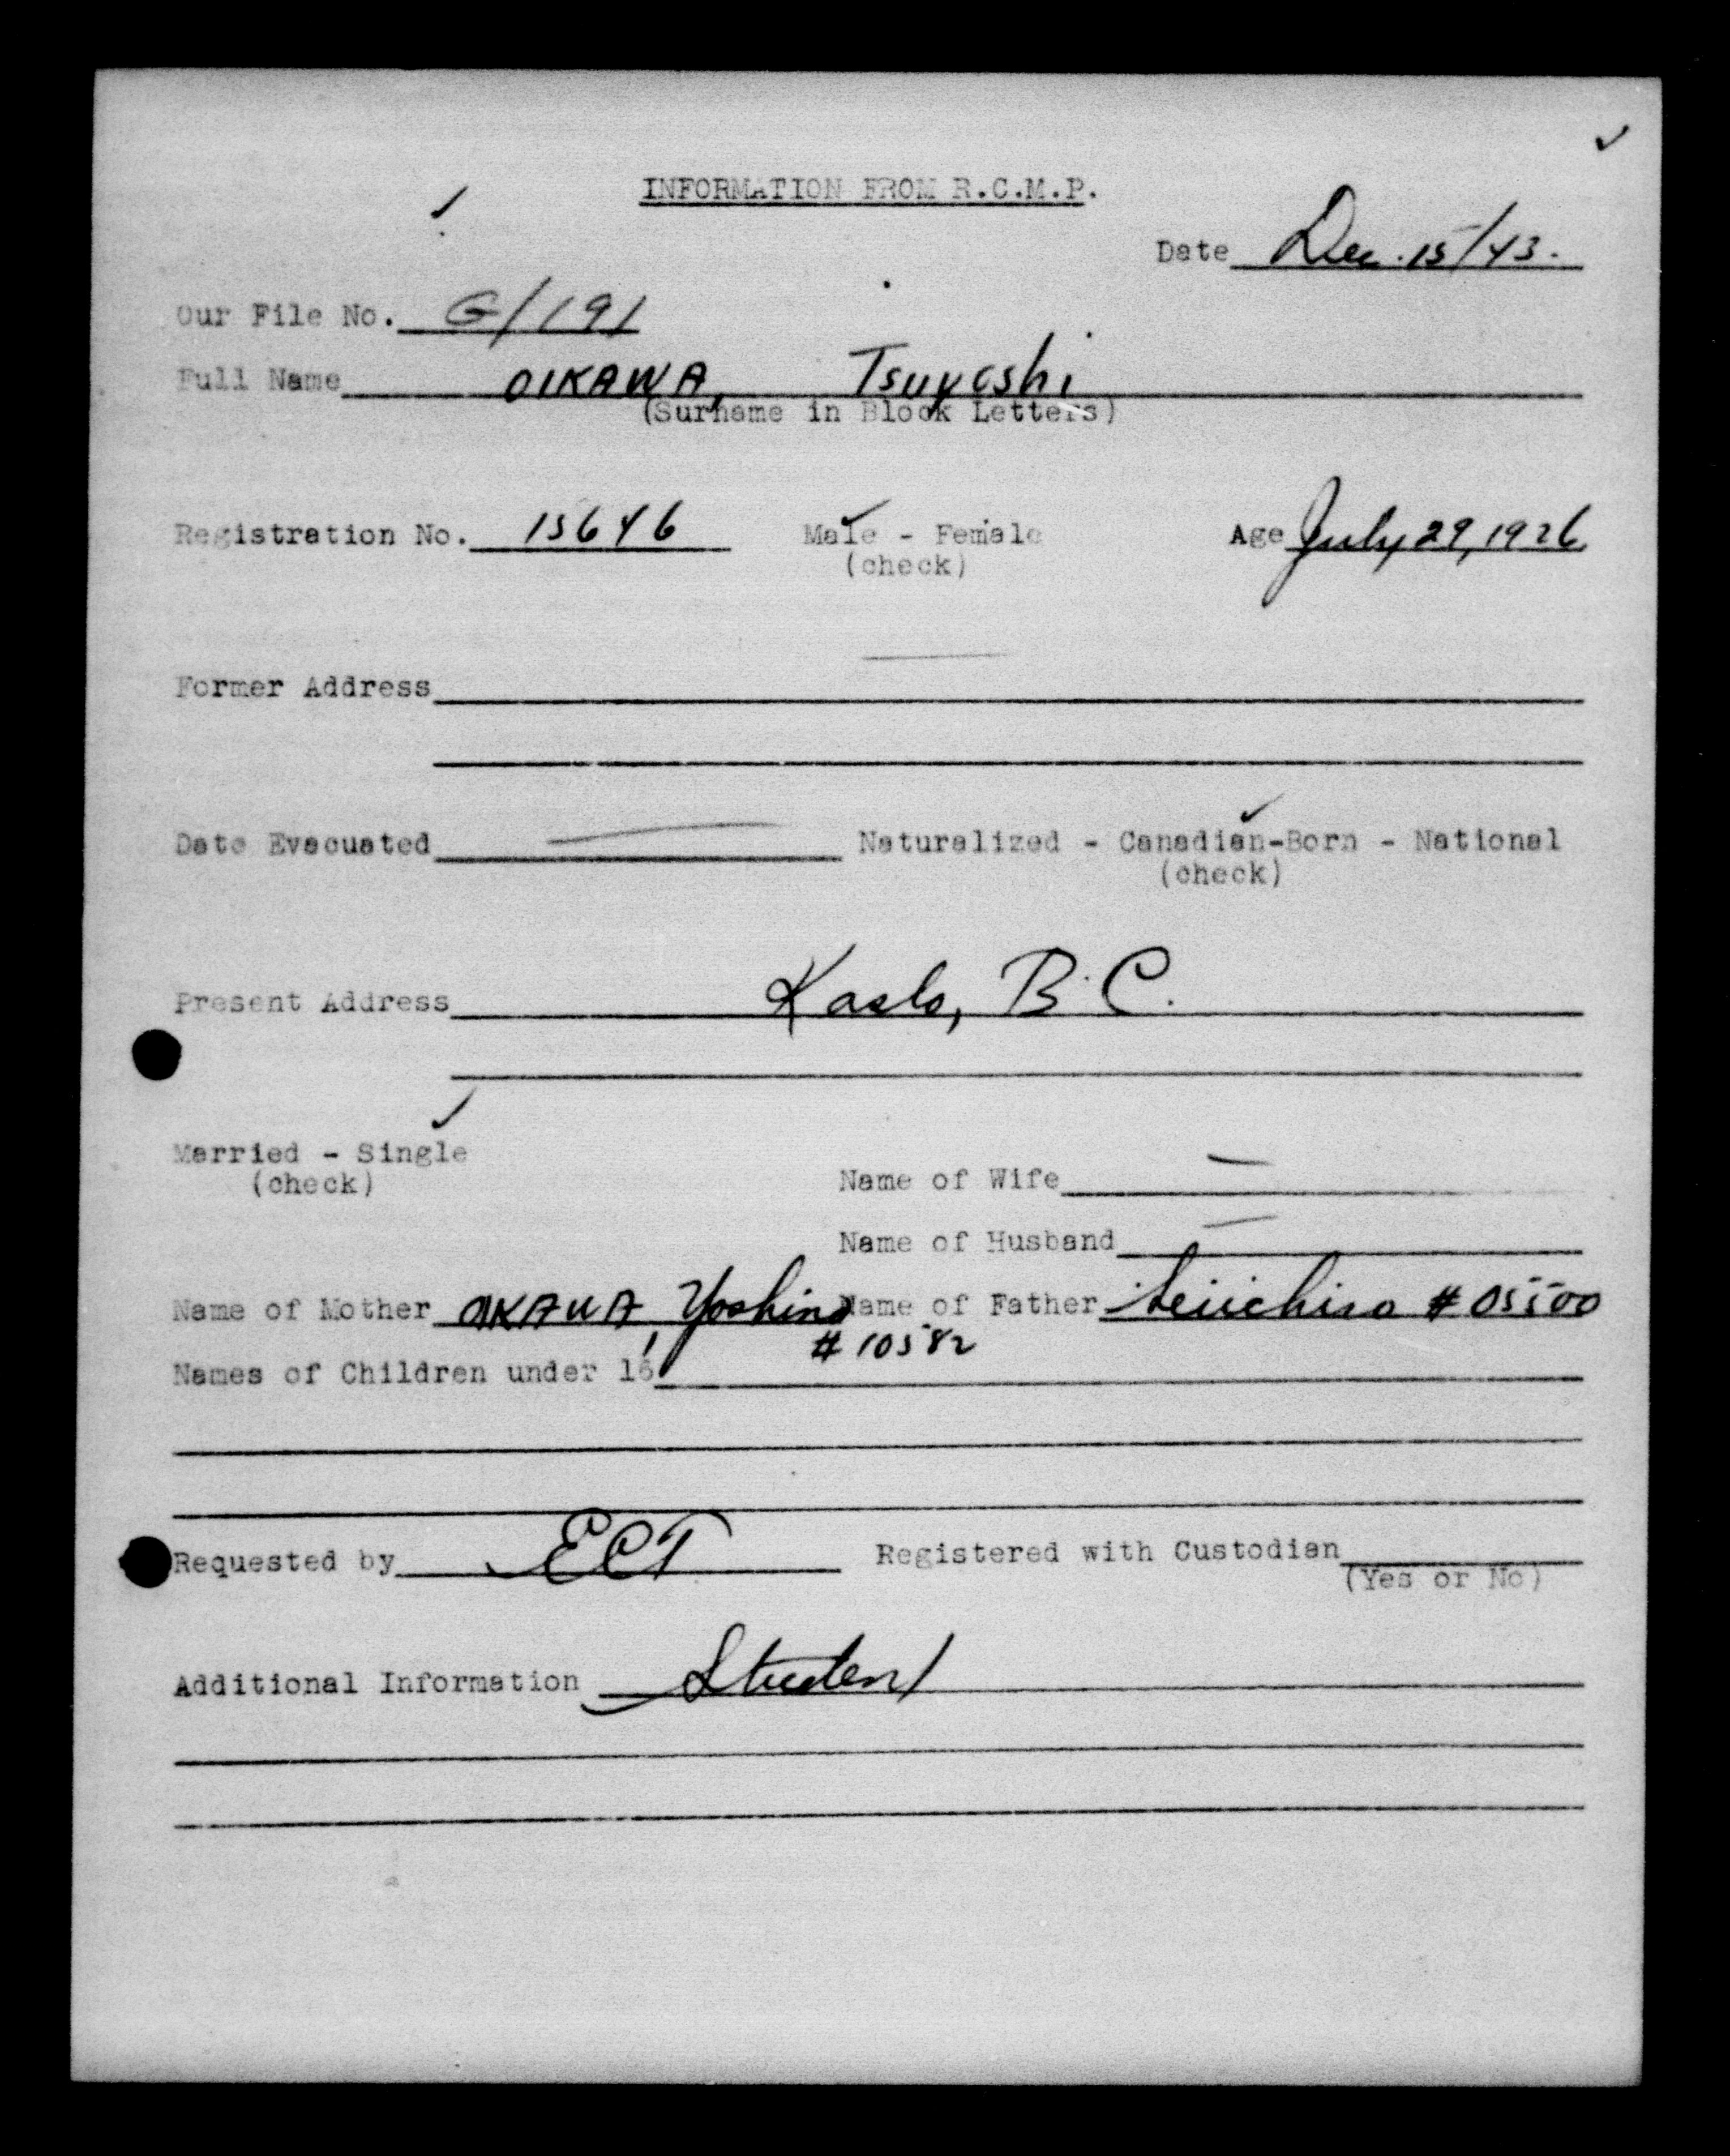 INFORMATION FROM R.C.M.P.
Date Dec. 15/43.
Our File No. G/191
Full Name OIKAWA, Tsuyoshi
(Surname in Block Letters)
Registration No. 15646 Male - Female Age July 29, 1926
(check)
Former Address
Date Evacuated Naturalized - Canadian-Born - National
(check)
Present Address Kaslo, B.C.
Married - Single
(check)
Name of Wife
Name of Husband
Name of Mother OIKAWA, Yoshino Name of Father Seiichiro # 05500
# 10582
Names of Children under 16
Requested by ECT Registered with Custodian
(Yes or No)
Additional Information Student